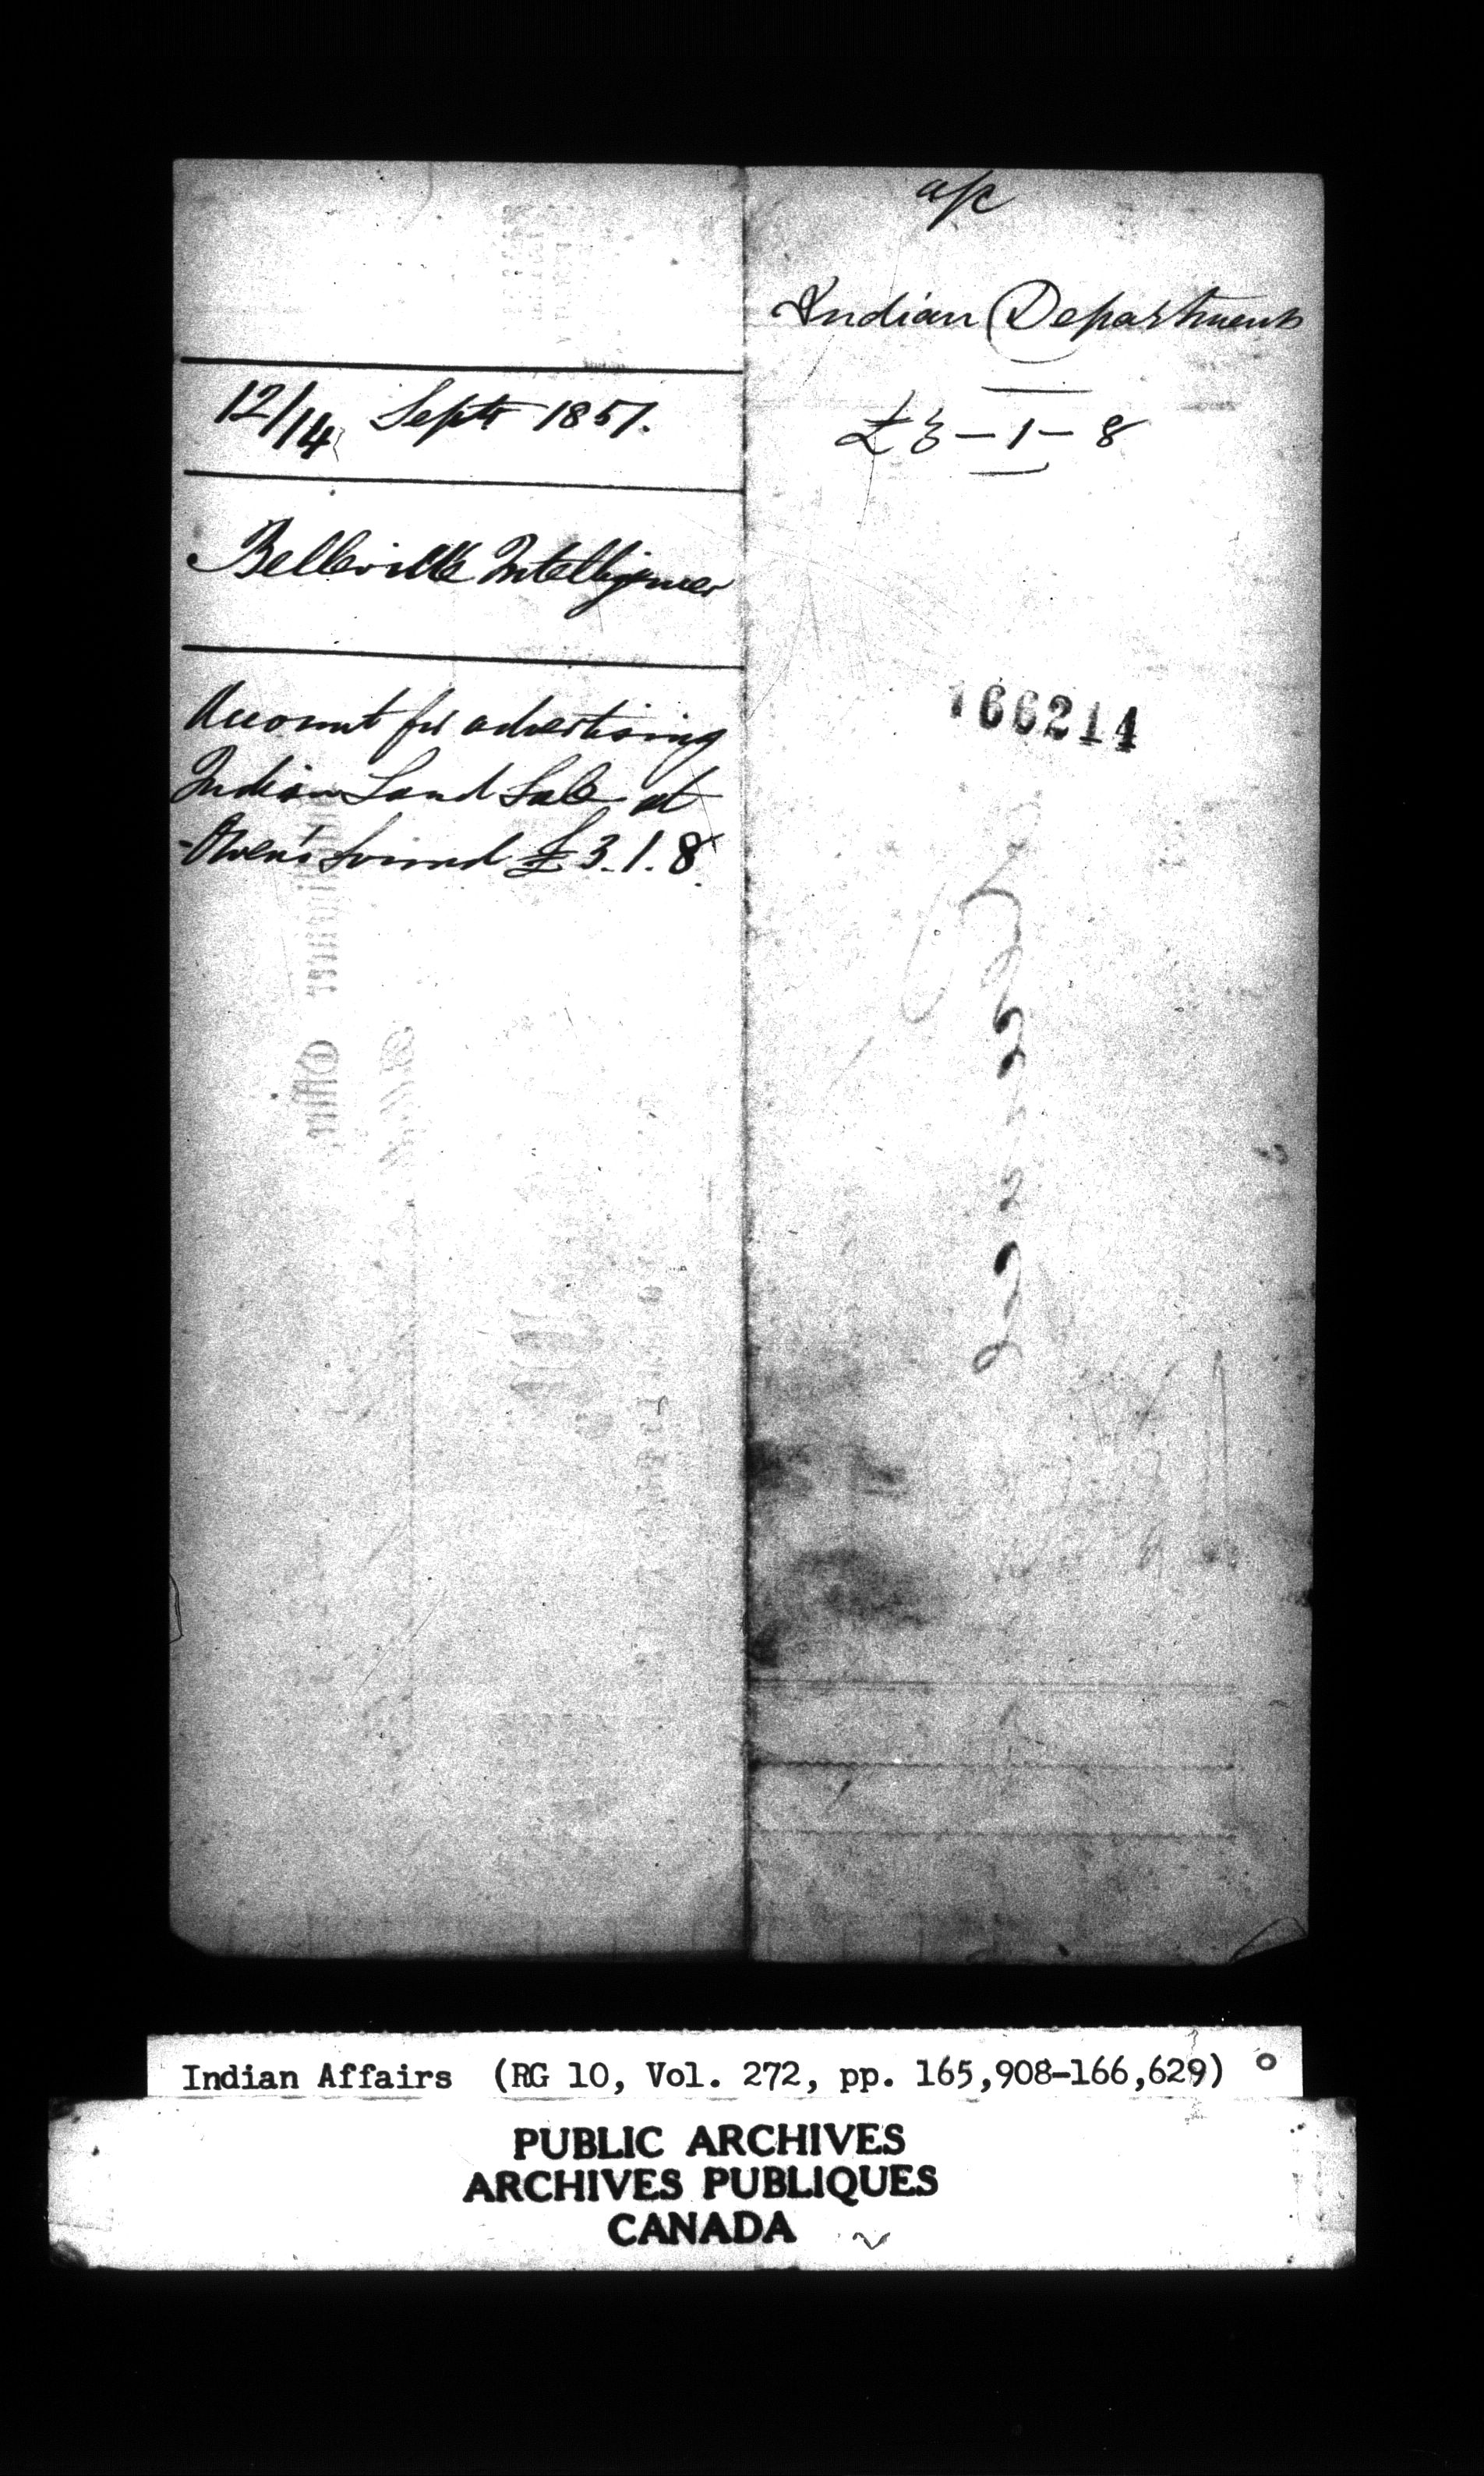 12/14 Septr 1857.
Belleville Intelligencer
Account for advertising
Indian Land Sale at
Owen's Sound £3.1.8
a/c
Indian Department
£3-1-8
166214
2
2
2
2
Indian Affairs (RG 10, Vol. 272, pp. 165,908-166,629)
PUBLIC ARCHIVES
ARCHIVES PUBLIQUES
CANADA